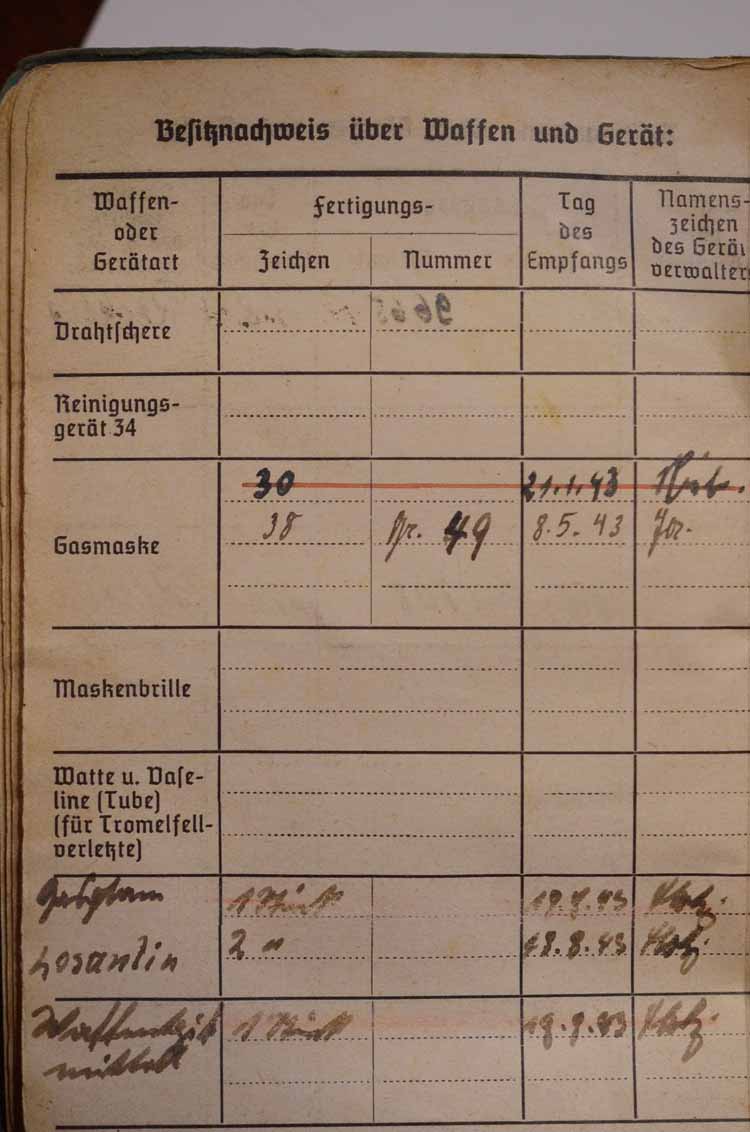 Besitznachweis über Waffen und Gerät:
Waffen- oder Gerätart
Fertigungs-
Zeichen
Nummer
Tag des Empfangs
Namens- zeichen des Gerät verwalters
Drahtschere
Reinigungs-
gerät 34
30 21.1.43
Gasmaske
38 Nr. 49 8.5.43 Jor.
Maskenbrille
Watte u. Vase-
line (Tube)
(für Tromelfell-
verletzte)
1 Stück
Losantin 2 " 18.8.43
1 Stück